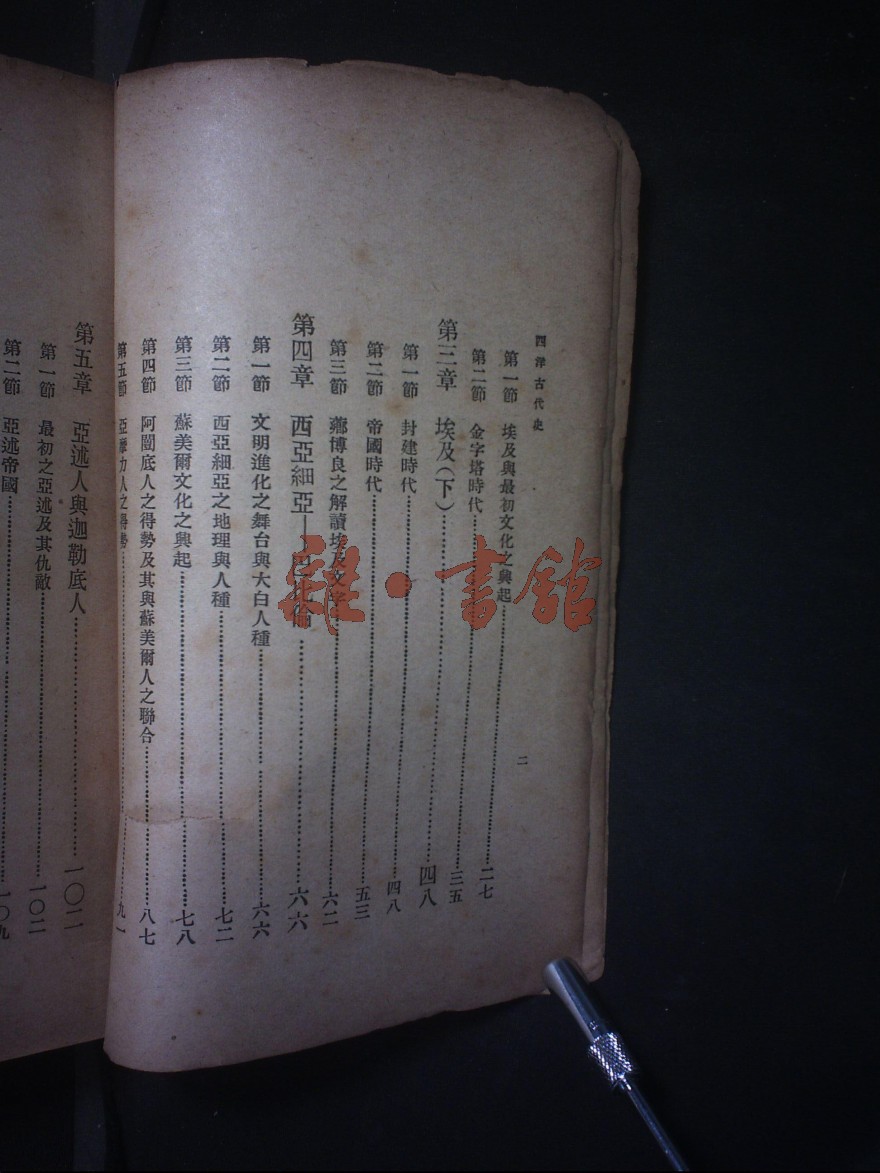 西洋古代史
二
第一節 埃及與最初文化之興起 二七
第二節 金字塔時代 三五
第三章 埃及(下) 四八
第一節 封建時代 四八
第二節 帝國時代 五三
第三節 薌博良之解讀埃及文字 六二
第四章 西亞細亞——巴比倫 六六
第一節 文明進化之舞台與大白人種 六六
第二節 西亞細亞之地理與人種 七二
第三節 蘇美爾文化之興起 七八
第四節 阿闓底人之得勢及其與蘇美爾人之聯合 八七
第五節 亞摩力人之得勢 九一
第五章 亞述人與迦勒底人 一〇二
第一節 最初之亞述及其仇敵 一〇二
第二節 亞述帝國 一〇九
雜·書館